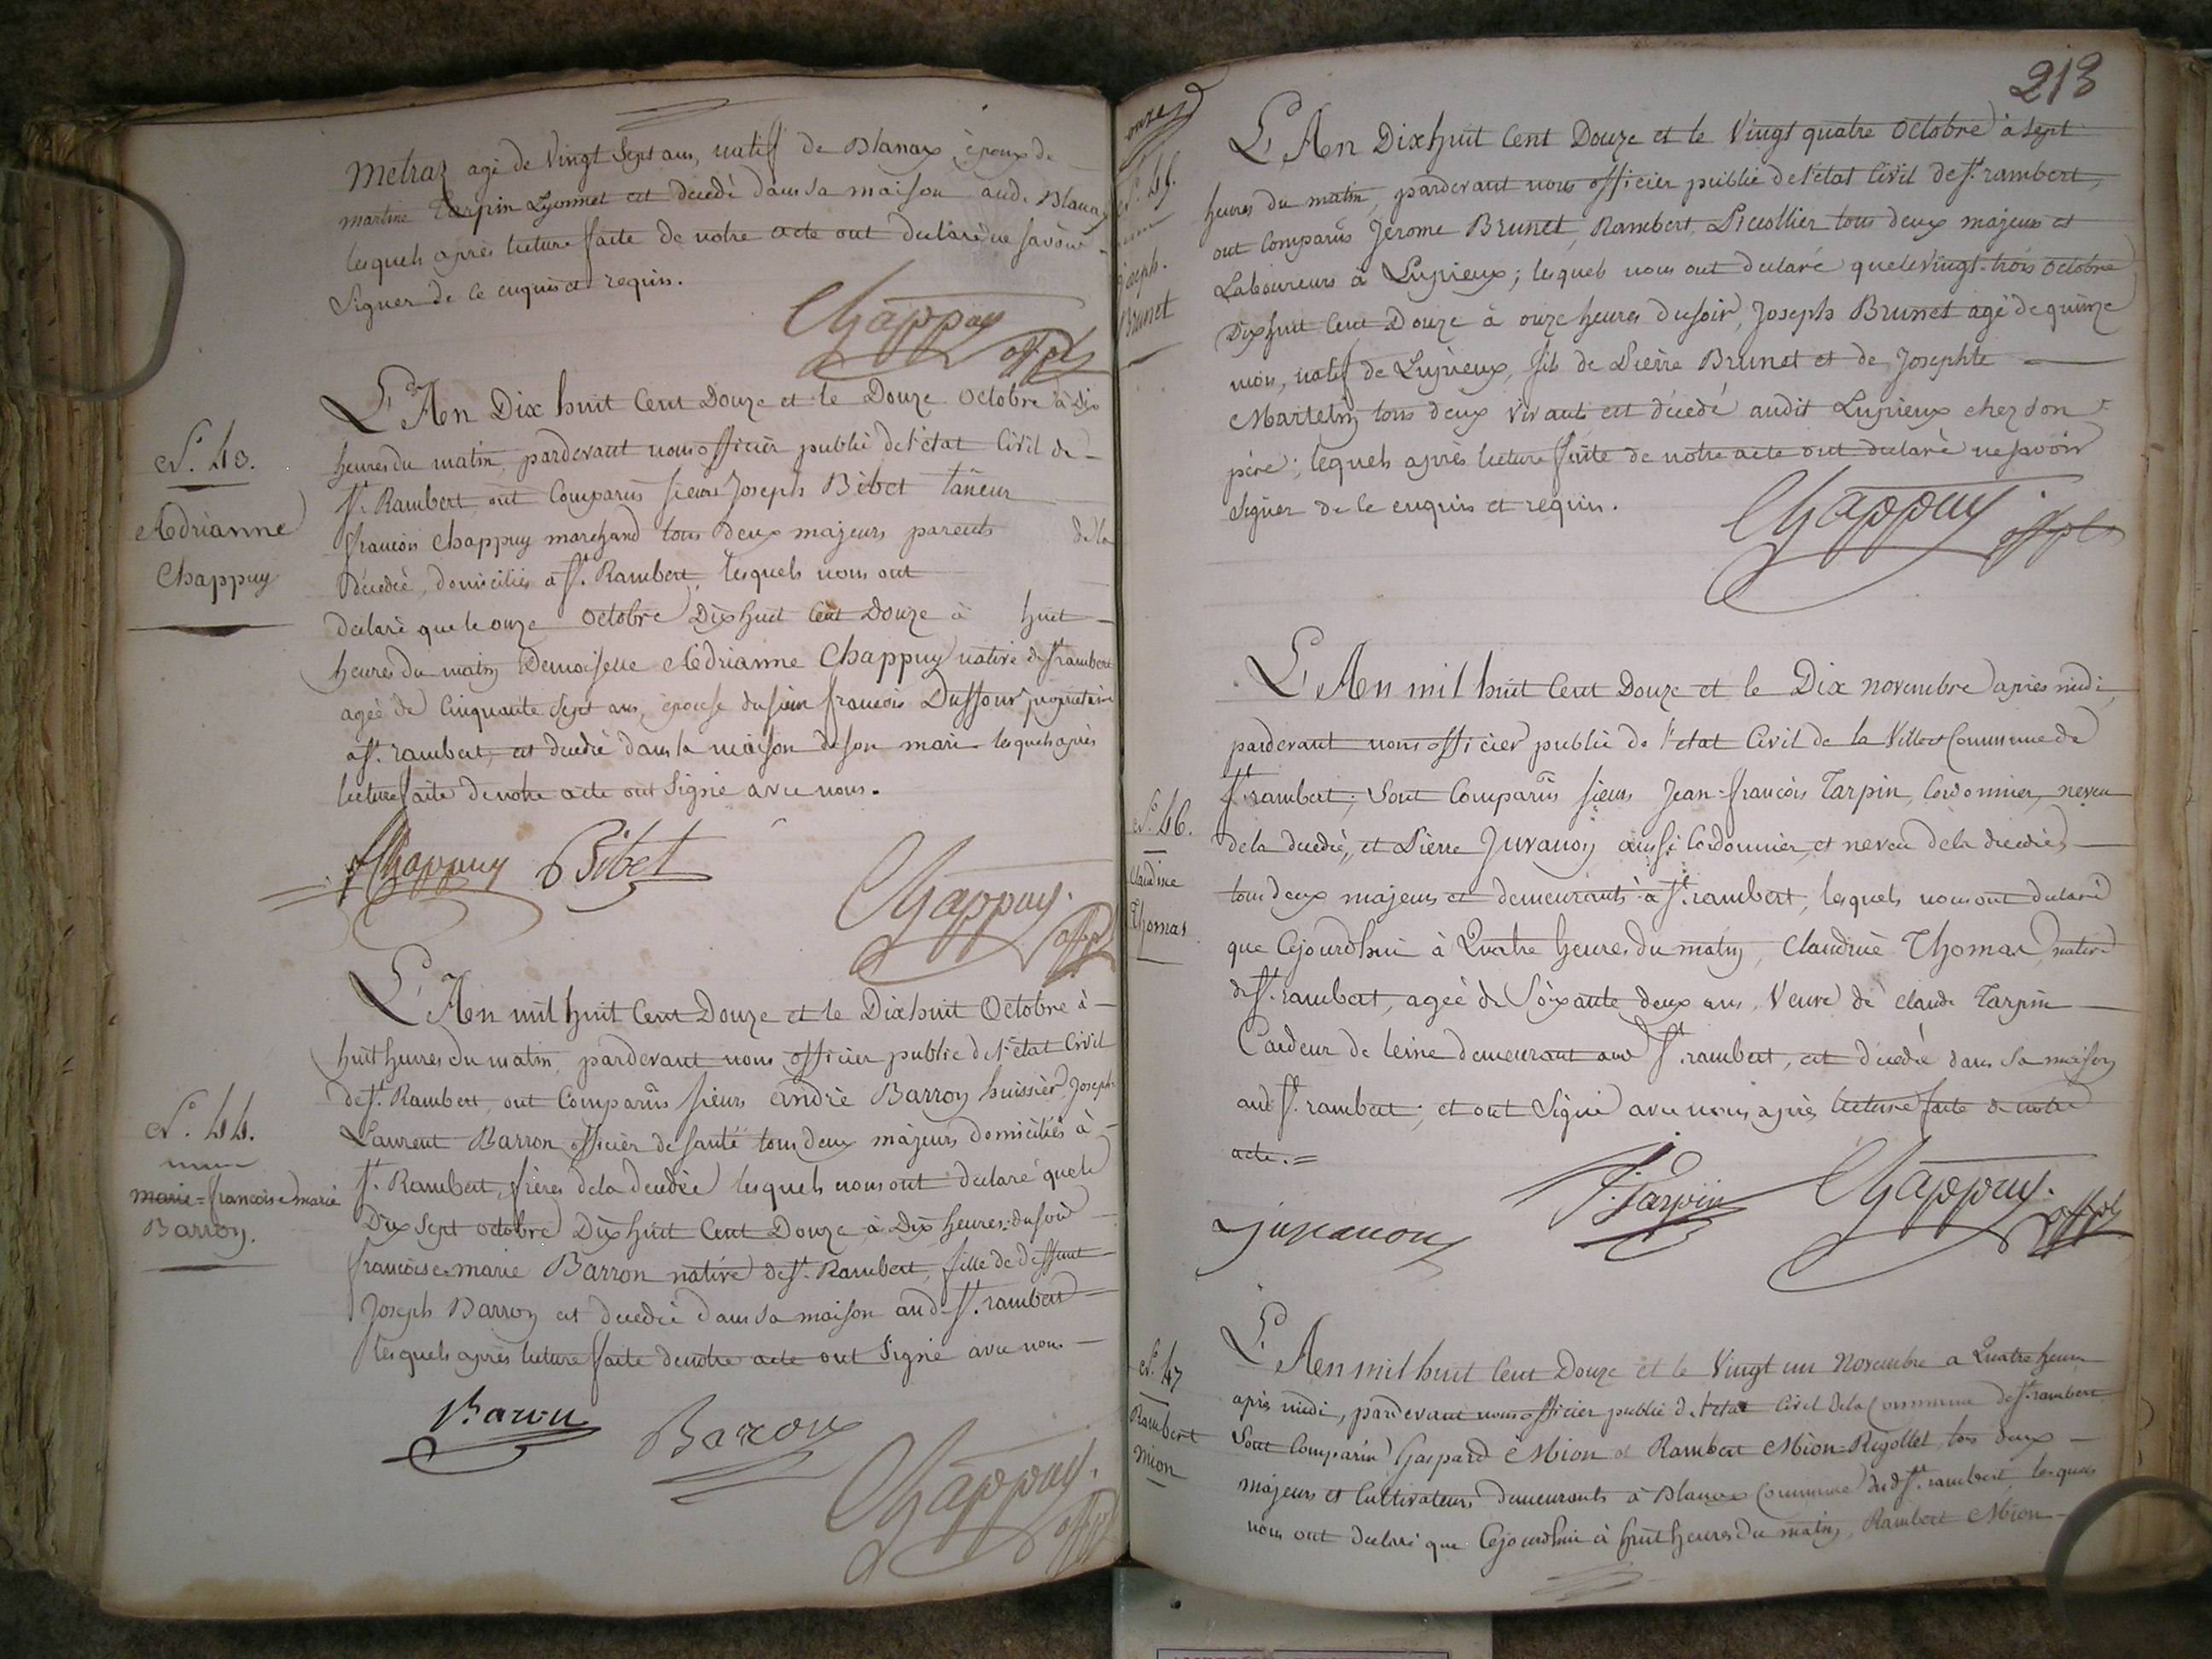 Metraz agé de Vingt Sept ans, natif de Blanaz, époux de
martine Tarpin Lyonnet est decedé dans sa maison aud. Blanaz
lesquels après lecture faite de notre acte ont declaré ne savoir
Signer de ce enquis et requis.
Chappuy
off. pb
N°. 43.
Adrianne
Chappuy
L'An Dix huit Cent Douze et le Douze Octobre à dix
heures du matin, pardevant nous officier public de l'état Civil de
St. Rambert, ont Comparus sieurs Joseph Bibet taneur
françois Chappuy marchand tous deux majeurs parents de la
décedée, domiciliés à St. Rambert, lesquels nous ont
declaré que le onze octobre Dix huit Cent Douze à huit
heures du matin Demoiselle Adrianne Chappuy native de St. rambert
ageé de Cinquante Sept ans, épouse du sieur françois Duffour propriétaire
à St. rambert, est decedée dans la maison de son mari lesquels après
lecture faite de notre acte ont Signé avec nous.
f Chappuy Bibet
Chappuy.
off. pb
N°. 44.
marie=francoise marie
Barron.
L'An mil huit Cent Douze et le Dix huit Octobre à
huit heures du matin, pardevant nous officier public de l'état Civil
de St. Rambert, ont Comparus sieurs andré Barron huissier, Joseph=
Laurent Barron officier de santé tous deux majeurs domiciliés à
St. Rambert, frères de la decedée lesquels nous ont declaré que le
Dix Sept octobre Dix huit Cent Douze à Dix heures du soir
françoise marie Barron native de St. Rambert, fille de deffunt
Joseph Barron est decedée dans sa maison aud. St. rambert
lesquels après lecture faite de notre acte ont Signé avec nous
Baron
Baron
Chappuy.
off. pb
213
N°. 45.
joseph.
Brunet
L'An Dix huit Cent Douze et le Vingt quatre Octobre à Sept
heures du matin, pardevant nous officier public de l'état Civil de St. rambert,
ont Comparus Jerome Brunet, Rambert Picollier tous deux majeurs et
Laboureurs à Lupieux; lesquels nous ont declaré que le vingt-trois Octobre
Dix huit Cent Douze à onze heures du soir, Joseph Brunet agé de quinze
mois, natif de Lupieux, fils de Pierre Brunet et de Josephte
Martelin tous deux vivants est décedé audit Lupieux chez son
père; lequels après lecture faite de notre acte ont declaré ne savoir
Signer de ce enquis et requis.
Chappuy.
off. pb
N°. 46.
Claudine
Thomas
L'An mil huit Cent Douze et le Dix novembre après midi,
pardevant nous officier public de l'etat Civil de la Ville et Commune de
St. rambert; Sont Comparus sieurs Jean-françois Tarpin, Cordonnier, neveu
de la decedée, et Pierre Juvanon aussi Cordonnier, et neveu de la decedée,
tous deux majeurs et demeurants à St. rambert, lesquels nous ont declaré
que Cejourdhui à Quatre heures du matin, Claudine Thomas, native
de St. rambert, ageé de Soixante deux ans, Veuve de Claude Tarpin
Cardeur de leine demeurant aud. St. rambert, est décedée dans sa maison
aud. St. rambert; et ont Signé avec nous après lecture faite de notre
acte.=
juvanon
Tarpin
Chappuy.
off. pb
N°. 47
Rambert
Mion
L'An mil huit Cent Douze et le Vingt un Novembre a Quatre heures
après midi, pardevant nous officier public de l'etat Civil de la Commune de St. rambert
Sont Comparus Gaspard Mion et Rambert Mion-Rigollet, tous deux
majeurs et Cultivateurs demeurants à Blanaz Commune dud. St. rambert, lesquels
nous ont declaré que Cejourdhui à huit heures du matin, Rambert Mion